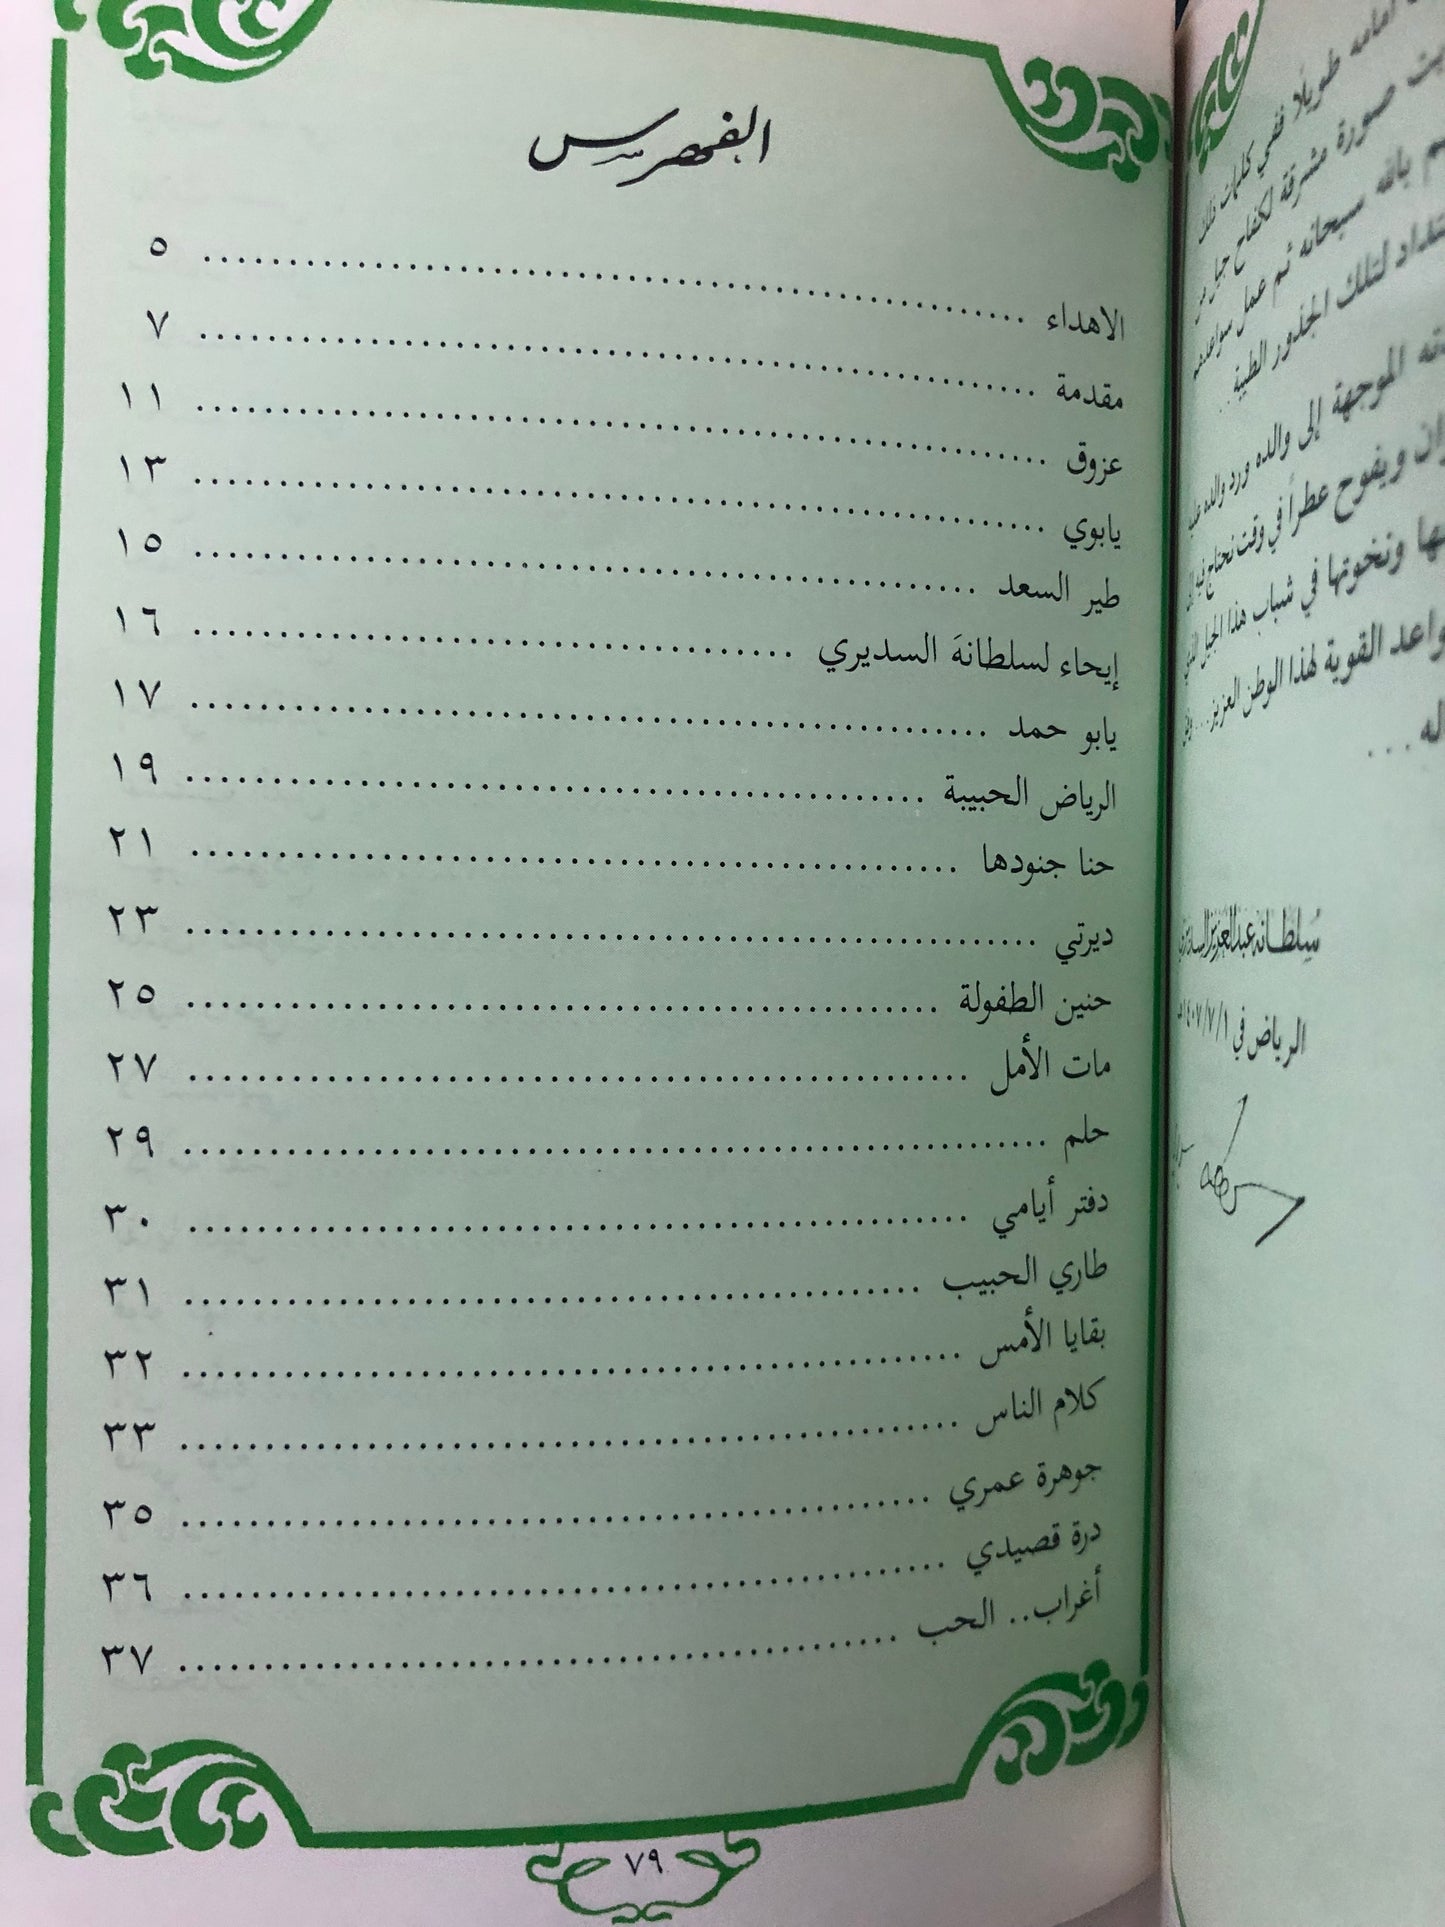 أمامه طويلا ففي كلمات تلك
صورة مشرقة لكفاح جيل من
بالله سبحانه ثم عمل سواعدهم
لتلك الجذور الطيبة . .
الموجهة إلى والده ورد والده عليه
ويفوح عطراً في وقت نحتاج فيه إلى
ونخوتها في شباب هذا الجيل الذي
القوية لهذا الوطن العزيز ...
له . . .
سلطانة عبدالعزيز السديري
الرياض في ١٤٠٧/٧/١هـ
الفهرس
الاهداء .......... ٥
مقدمة .......... ٧
عزوق .......... ١١
يابوي .......... ١٣
طير السعد .......... ١٥
إيحاء لسلطانهَ السديري .......... ١٦
يابو حمد .......... ١٧
الرياض الحبيبة .......... ١٩
حنا جنودها .......... ٢١
ديرتي .......... ٢٣
حنين الطفولة .......... ٢٥
مات الأمل .......... ٢٧
حلم .......... ٢٩
دفتر أيامي .......... ٣٠
طاري الحبيب .......... ٣١
بقايا الأمس .......... ٣٢
كلام الناس .......... ٣٣
جوهرة عمري .......... ٣٥
درة قصيدي .......... ٣٦
أغراب.. الحب .......... ٣٧
٧٩